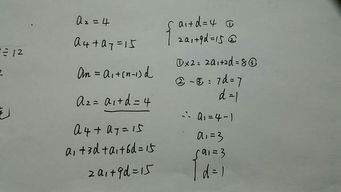 ÷12
a₂=4
a₄+a₇=15
an=a₁+(n-1)d
a₂=a₁+d=4
a₄+a₇=15
a₁+3d+a₁+6d=15
2a₁+9d=15
{a₁+d=4 ①
2a₁+9d=15 ②
①×2: 2a₁+2d=8
②-③: 7d=7
d=1
∴ a₁=4-1
a₁=3
{a₁=3
d=1